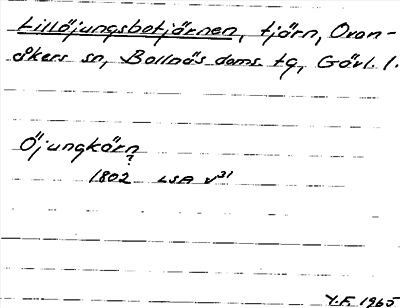 Lillöjungsbotjärnen, tjärn, Ovan-
åkers sn, Bollnäs doms. tg, Gävl. l.
Öjungkärn
?
1802 LSA v31
Y.F. 1965